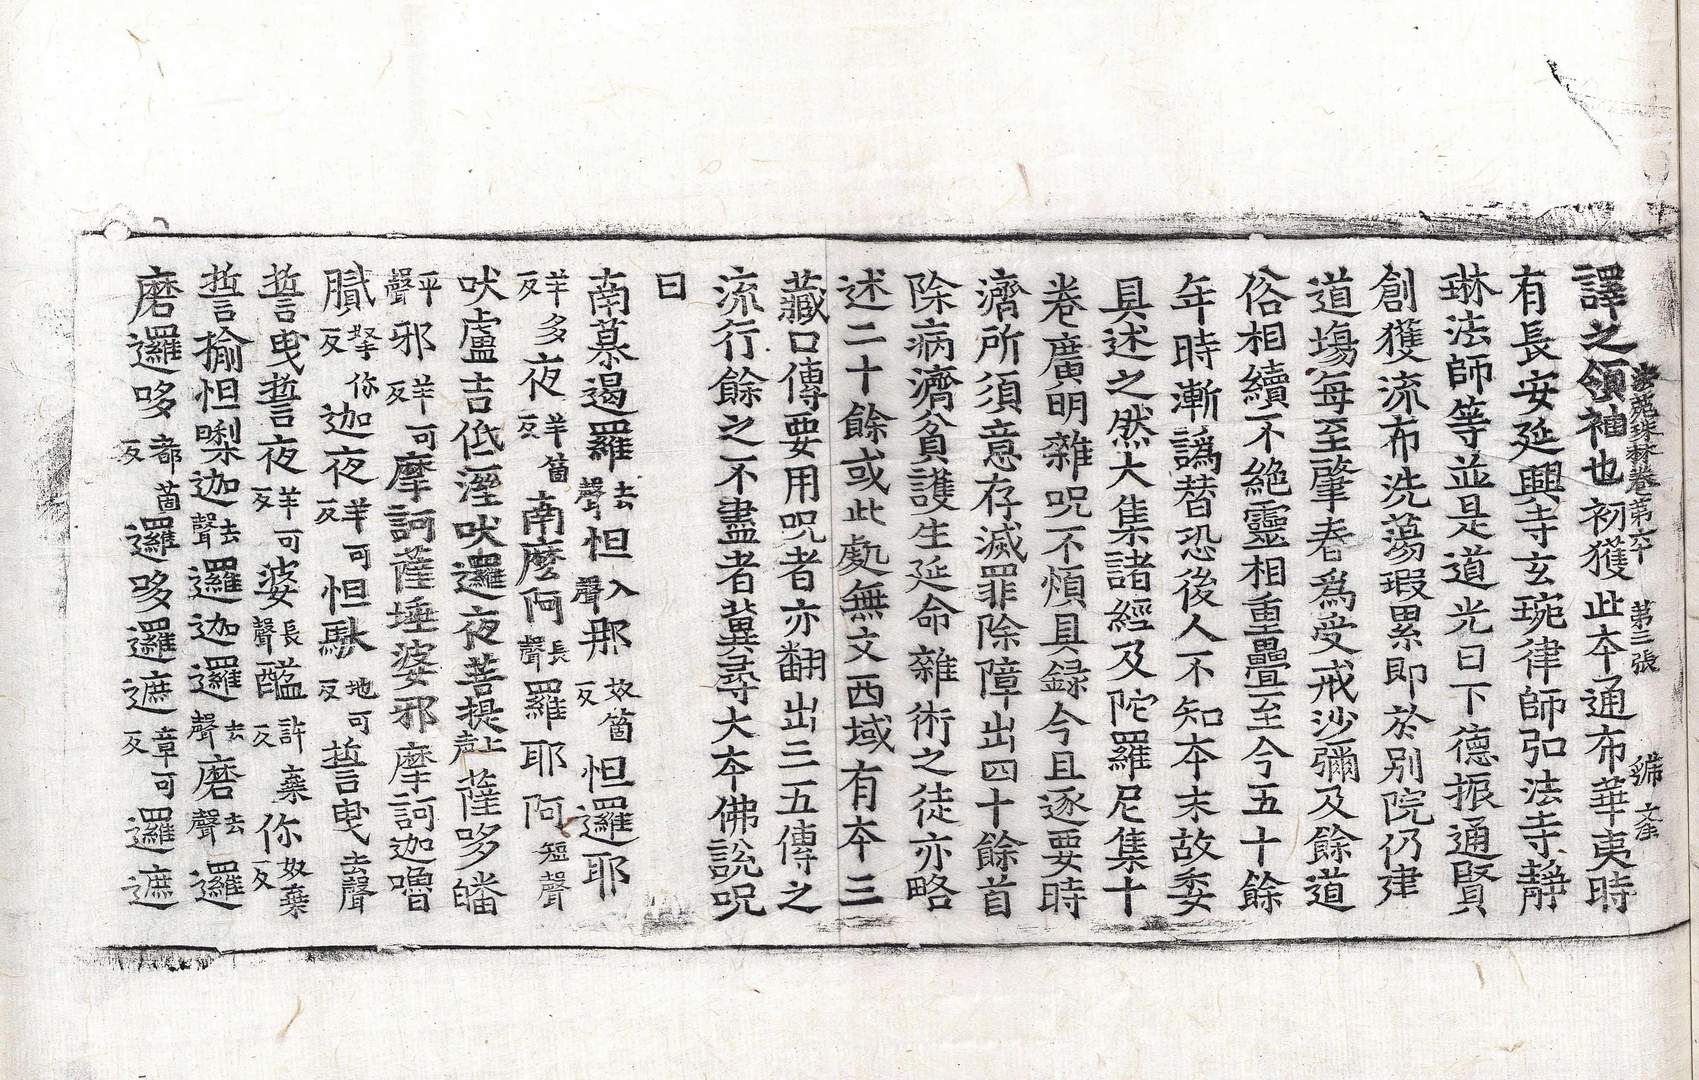 法苑珠林卷第六十 第三張 㴲
譯之領袖也初獲此夲通布華夷時
有長安延興寺玄琬律師弘法寺靜
琳法師等並是道光日下德振通賢
創獲流布洗蕩瑕累即於別院仍建
道場每至肇春爲受戒沙彌及餘道
俗相續不絶靈相重疊至今五十餘
年時漸譌替恐後人不知夲末故委
具述之然大集諸經及陀羅尼集十
卷廣明雜呪不煩具録今且逐要時
濟所須意存滅罪除障出四十餘首
除病濟貧護生延命雜術之徒亦略
述二十餘或此處無文西域有夲三
藏口傳要用呪者亦翻出三五傳之
流行餘之不盡者兾尋大夲佛說呪
曰
南慕遏羅去聲怛入聲那奴箇反怛邏耶
羊多反夜羊箇反南麽阿長聲羅耶阿短聲
吠盧吉低溼吠邏夜菩提上聲薩哆皤
平聲邪羊可反摩訶薩埵婆邪摩訶迦嚕
膩拏你反迦夜羊可反怛馱地可反誓曳去聲
誓曳誓夜羊可反婆長聲醯許棄反你奴棄反
誓揄怛㘑迦去聲邏迦邏去聲磨去聲邏
磨邏哆都箇反邏哆邏遮章可反邏遮